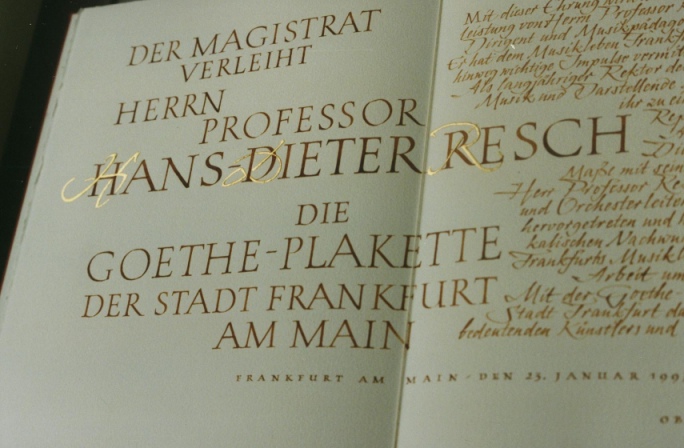 DER MAGISTRAT
VERLEIHT
HERRN
PROFESSOR
HANS-DIETER RESCH
DIE
GOETHE-PLAKETTE
DER STADT FRANKFURT
AM MAIN
FRANKFURT AM MAIN · DEN 25. JANUAR 199
OB
Mit dieser Ehrung wird
leistung von Herrn Professor
Dirigent und Musikpädago
Er hat dem Musikleben Frankf
hinweg wichtige Impulse vermit
Als langjähriger Rektor de
Musik und Darstellende
ihr zu ein
Re
Die
Maße mit sein
Herr Professor Re
und Orchesterleiter
hervorgetreten und
kalischen Nachwu
Frankfurts Musikl
Arbeit um
Mit der Goethe-
Stadt Frankfurt d
bedeutenden Künstlers und